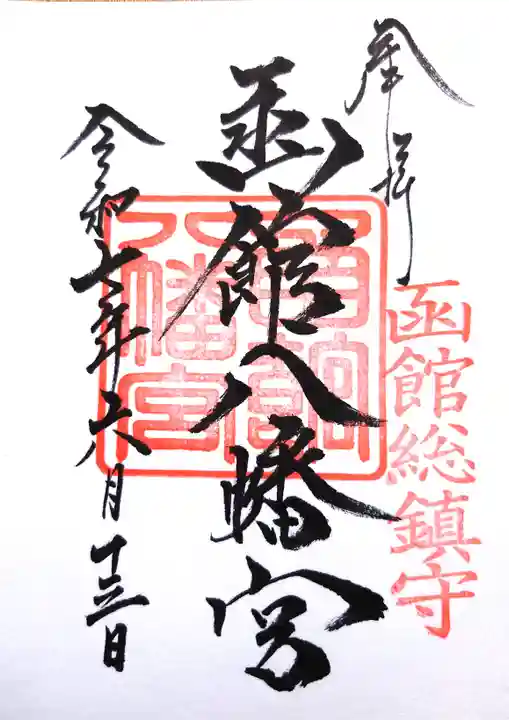 奉拝
函館総鎮守
函館八幡宮
令和七年六月十三日